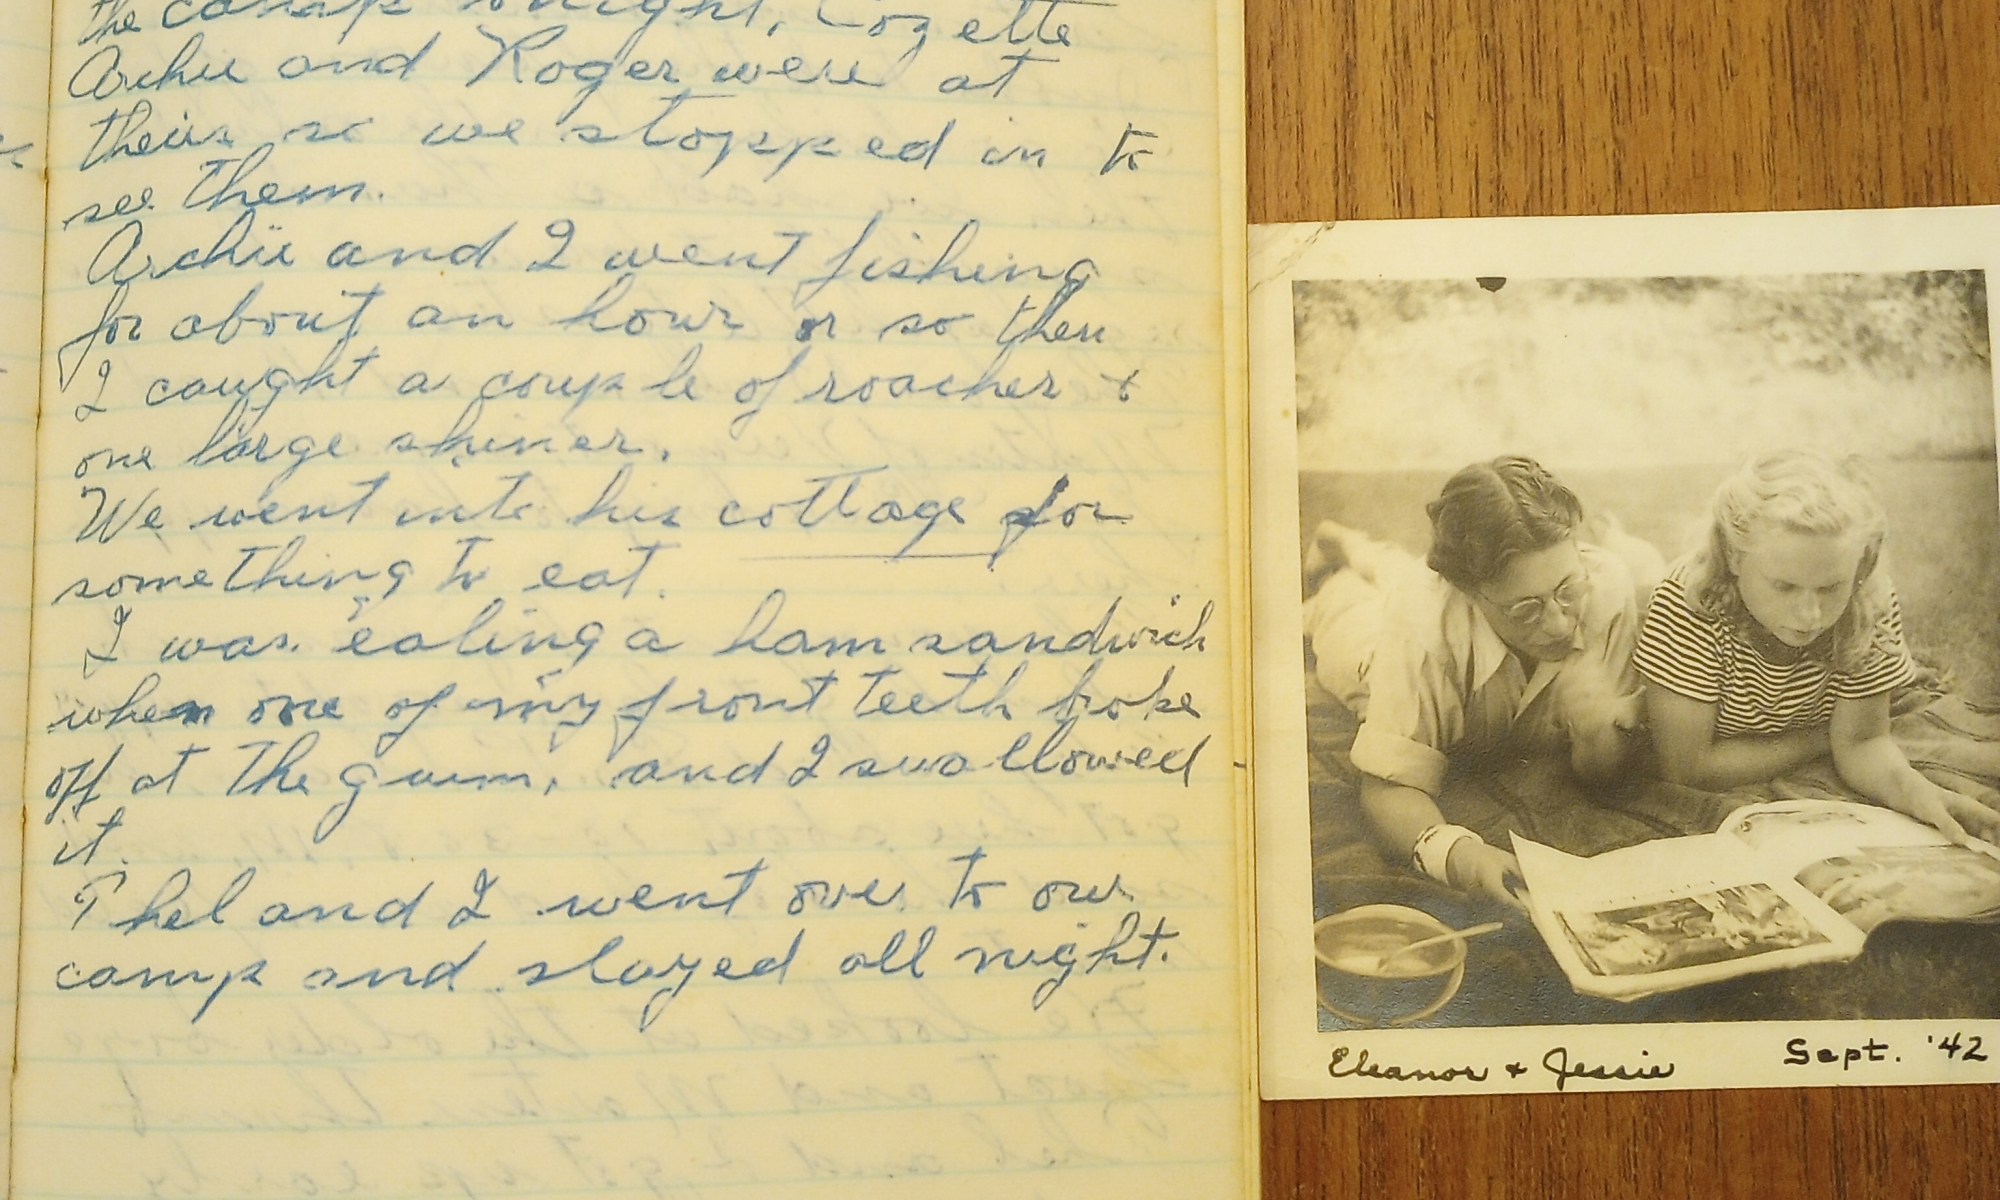 the camp tonight, Cozette
Archie and Roger were at
theirs so we stopped in to
see them.
Archie and I went fishing
for about an hour or so then
I caught a couple of roaches +
one large shiner.
We went into his cottage for
something to eat.
I was eating a ham sandwich
when one of my front teeth broke
off at the gum, and I swallowed
it.
Thel and I went over to our
camp and stayed all night.
Eleanor + Jessie Sept. '42